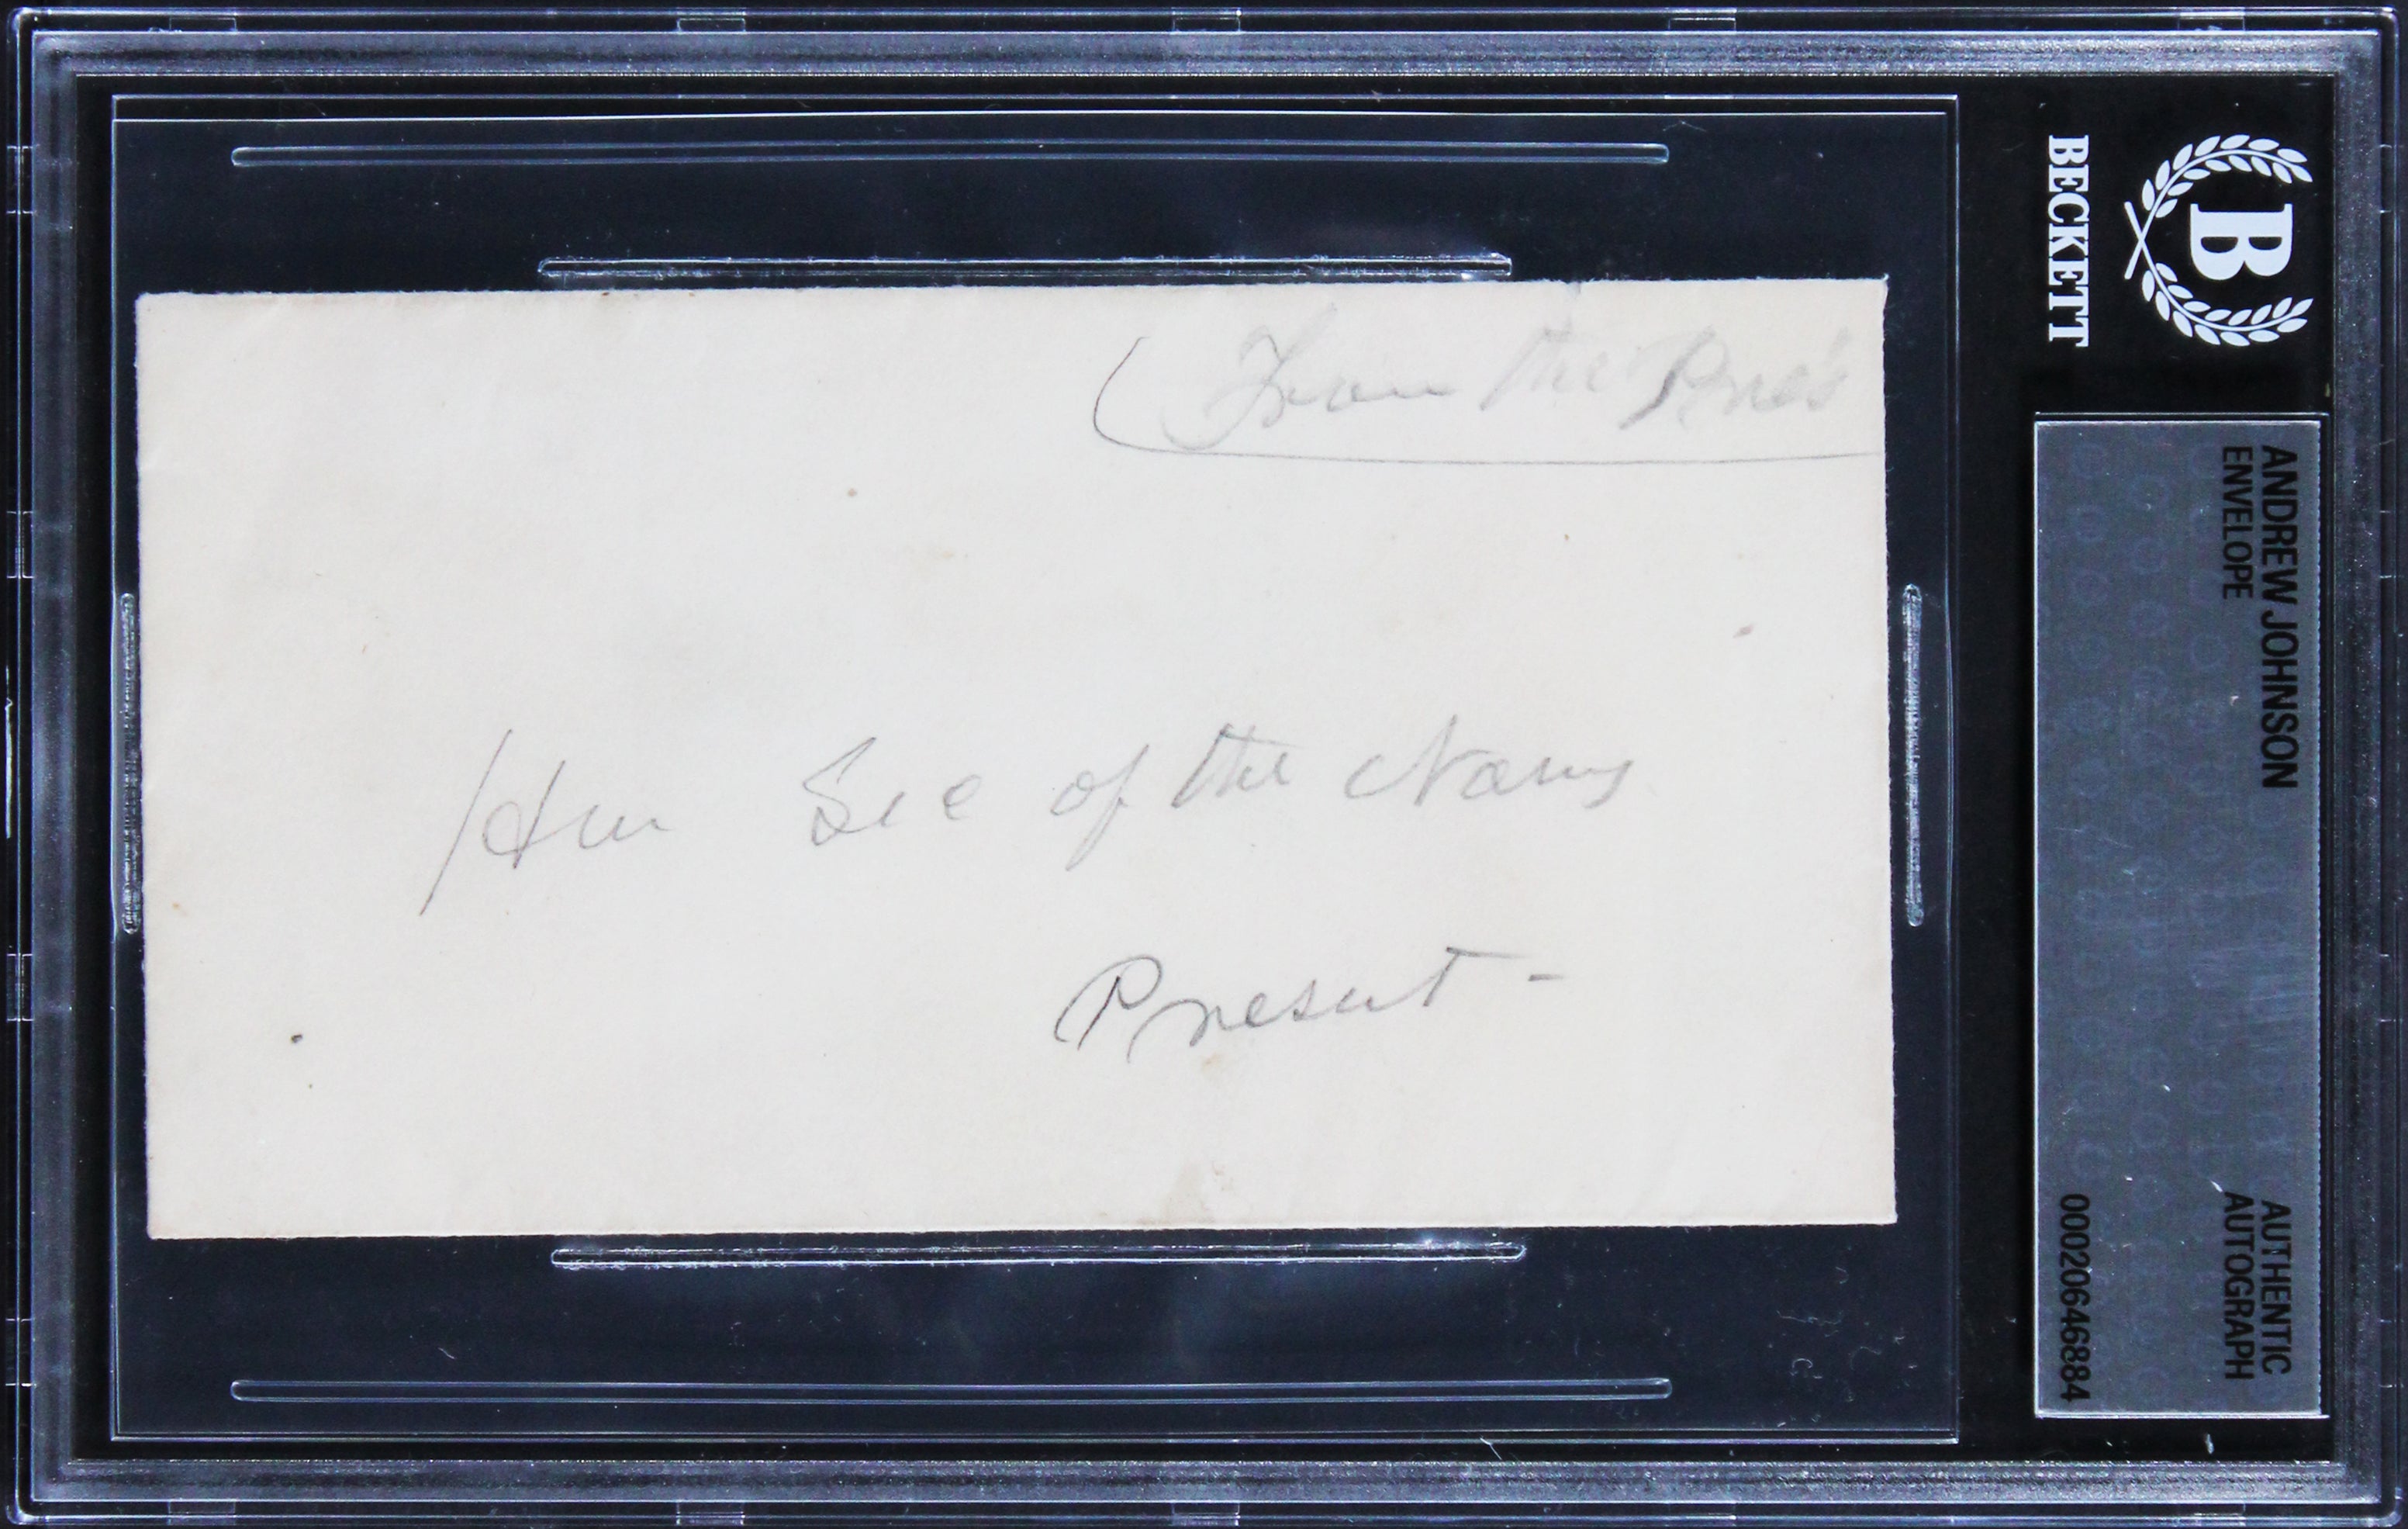 From the Pres
Hon Sec of the Navy
Present -
B
BECKETT
ANDREW JOHNSON
ENVELOPE
AUTHENTIC
AUTOGRAPH
00020646884